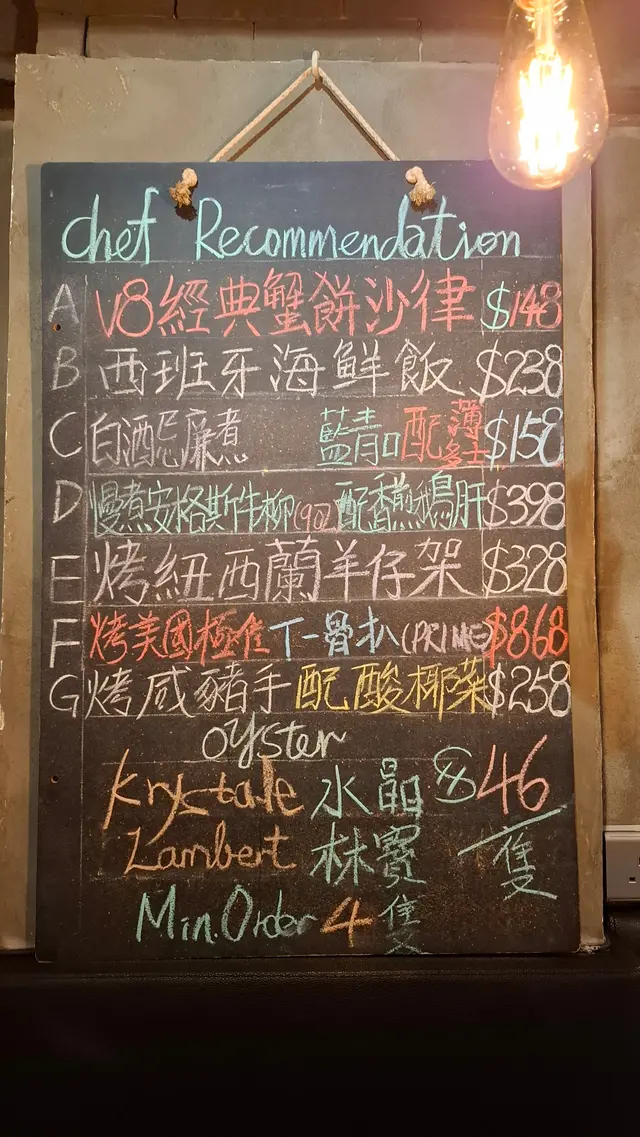 Chef Recommendation
A V8經典蟹餅沙律 $148
B 西班牙海鮮飯 $238
C 白酒忌廉煮 藍青口配薄多士 $158
D 慢煮安格斯牛柳(90Z)配香煎鵝肝 $398
E 烤紐西蘭羊仔架 $328
F 烤美國極佳T-骨扒(PRIME) $868
G 烤咸豬手配酸椰菜 $258
oyster
Krystale 水晶 $46
Lambert 林寶 /隻
Min.Order 4隻